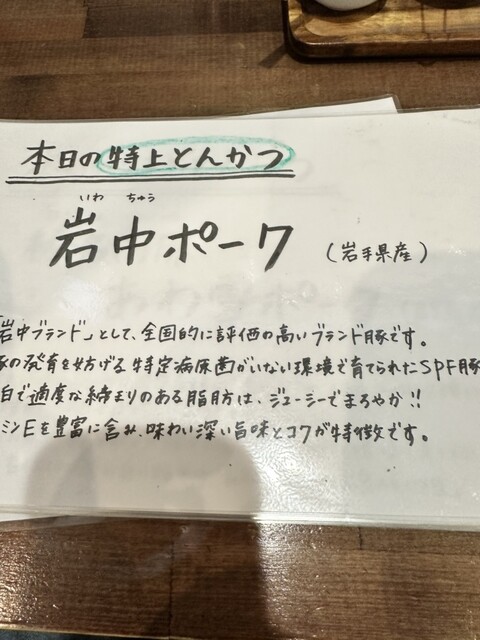 本日の特上とんかつ
いわ ちゅう
岩中ポーク (岩手県産)
岩中ブランド」として、全国的に評価の高いブランド豚です。
豚の発育を妨げる特定病原菌がいない環境で育てられたSPF豚
白で適度な締まりのある脂肪は、ジューシーでまろやか!!
ミンEを豊富に含み、味わい深い旨味とコクが特徴です。